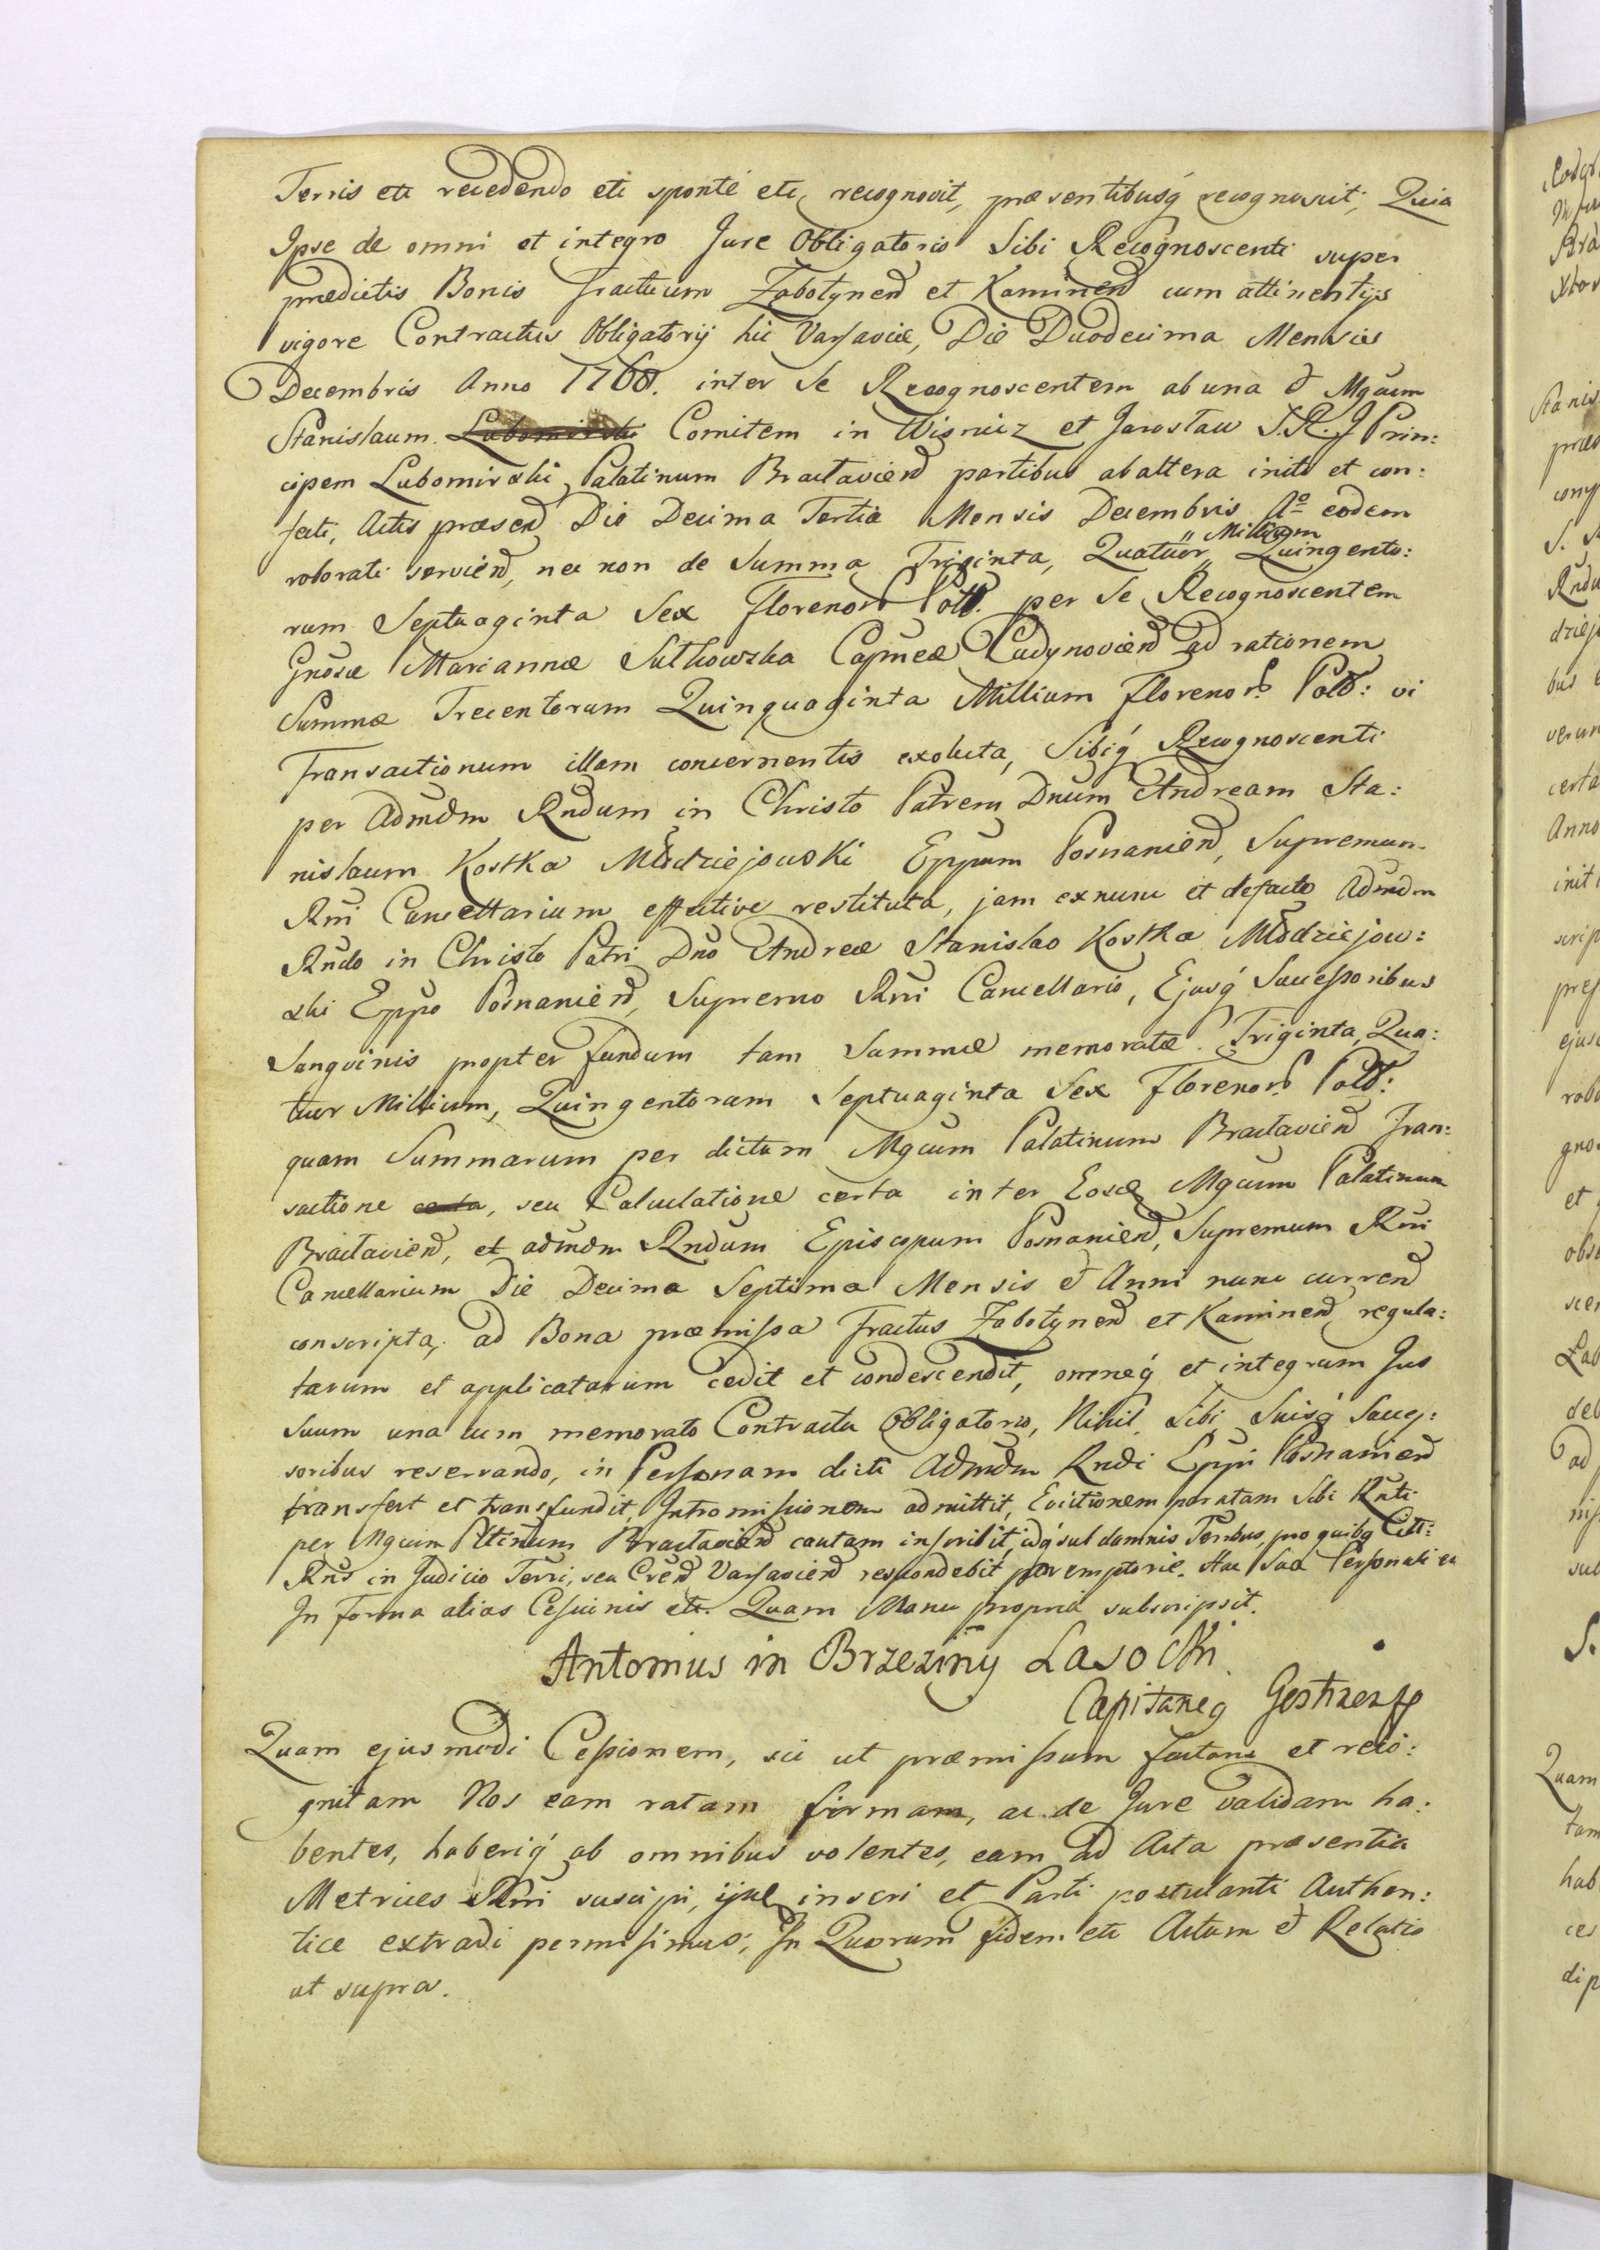 Terris etc recedendo etc sponte etc, recognovit, præsentibusq́ recognoscit; Quia
Ipse de omni et integro Jure Obligatorio Sibi Recognoscenti super
prædictis Bonis Tractuum Zabotynen̄ et Kaminen̄ cum attinentijs
vigore Contractus Obligatorij hic Varsaviæ, Die Duodecima Mensis
Decembris Anno 1768. inter Se Recognoscentem ab una & Mgcum
Stanislaum Lubomirski Comitem in Wisnicz et Jaroslaw S.R.J Prin:
cipem Lubomirski Palatinum Braclavien̄ partibus ab altera initi et con:
fecti, Actis præsen̄ Die Decima Tertia Mensis Decembris Ao eodem
roborati servien̄, nec non de Summa Triginta, Quatuor Millium Quingento:
rum Septuaginta Sex Florenor̄ Poll. per Se Recognoscentem
Gnosæ Mariannæ Sutkowska Capneæ Ladynovien̄ ad rationem
Summæ Trecentorum Quinquaginta Millium Florenor̄ Poll: vi
Transactionum illam concernentis exoluta, Sibiq́ Recognoscenti
per Admdm Rndum in Christo Patrem Dnum Andream Sta:
nislaum Kostka Młodziejowski Eppum Posnanien̄, Supremum
Rni Cancellarium effective restituta, jam ex nunc et de facto Admdm
Rndo in Christo Patri Dno Andreæ Stanislao Kostka Młodziejow:
ski Eppo Posnanien̄, Supremo Rni Cancellario, Ejusq́ Successoribus
Sanguinis propter fundum tam Summæ memoratæ Triginta Qua:
tuor Millium, Quingentorum Septuaginta Sex Florenor̄ Poll:
quam Summarum per dictum Mgcum Palatinum Braclavien̄ Tran:
sactione certa, seu Calculatione certa inter Eosdē Mgcum Palatinum
Braclavien̄, et admdm Rndum Episcopum Posnanien̄, Supremum Rni
Cancellarium Die Decima Septima Mensis & Anni nunc curren̄
conscripta, ad Bona præmissa Tractus Zabotynen̄ et Kaminen̄ regula:
tarum et applicatarum cedit et condescendit, omneq́ et integrum Jus
Suum una cum memorato Contractu Obligatorio, Nihil Sibi Suisq́ Succes:
soribus reservando, in Personam dicti Admdm Rndi Eppi Posnanien̄
transfert et transfundit, Intromissionem admittit, Evictionem paratam Sibi Rnti
per Mgcum Pltinum Braclavien̄ cautam inscribit, idq́ sub damnis Terribus, pro quibq Citt:
Rns in Judicio Terri, seu Cren̄ Varsavien̄ respondebit peremptorie. Hac Sua Personali ca
In forma alias Cessionis etc. Quam Manu propria subscripsit.
Antonius in Brzeziny Lasocki
Capitaneq Gostinensis
Quam ejusmodi Cessionem, sic ut præmissum factam et reco:
gnitam Nos eam ratam firmam, ac de Jure validam ha:
bentes, haberiq́ ab omnibus volentes, eam ad Acta præsentia
Metrices Rni suscipi, ijsq inscri et Parti postulanti Authen:
tice extradi permisimus; In Quorum fidem etc Actum & Relatio
ut supra.